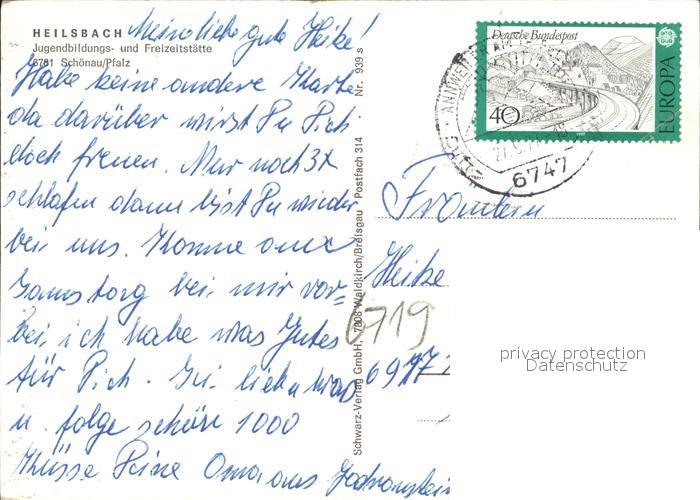 HEILSBACH
Jugendbildungs- und Freizeitstätte
6781 Schönau/Pfalz
Meine liebe gute Heike!
Habe keine andere Karte
da darüber wirst Du Dich
doch freuen. Nur noch 3x
schlafen dann bist Du wieder
bei uns. Komme am
Samstag bei mir vor-
bei, ich habe was Gutes
für Dich. Sei lieb u. brav
u. folge schön 1000
Küsse Deine Oma, aus
Schwarz-Verlag GmbH, 7808 Waldkirch/Breisgau Postfach 314 Nr. 939 s
Deutsche Bundespost
40
EUROPA
1977
6747
Fräulein
Heike
6719
privacy protection
Datenschutz